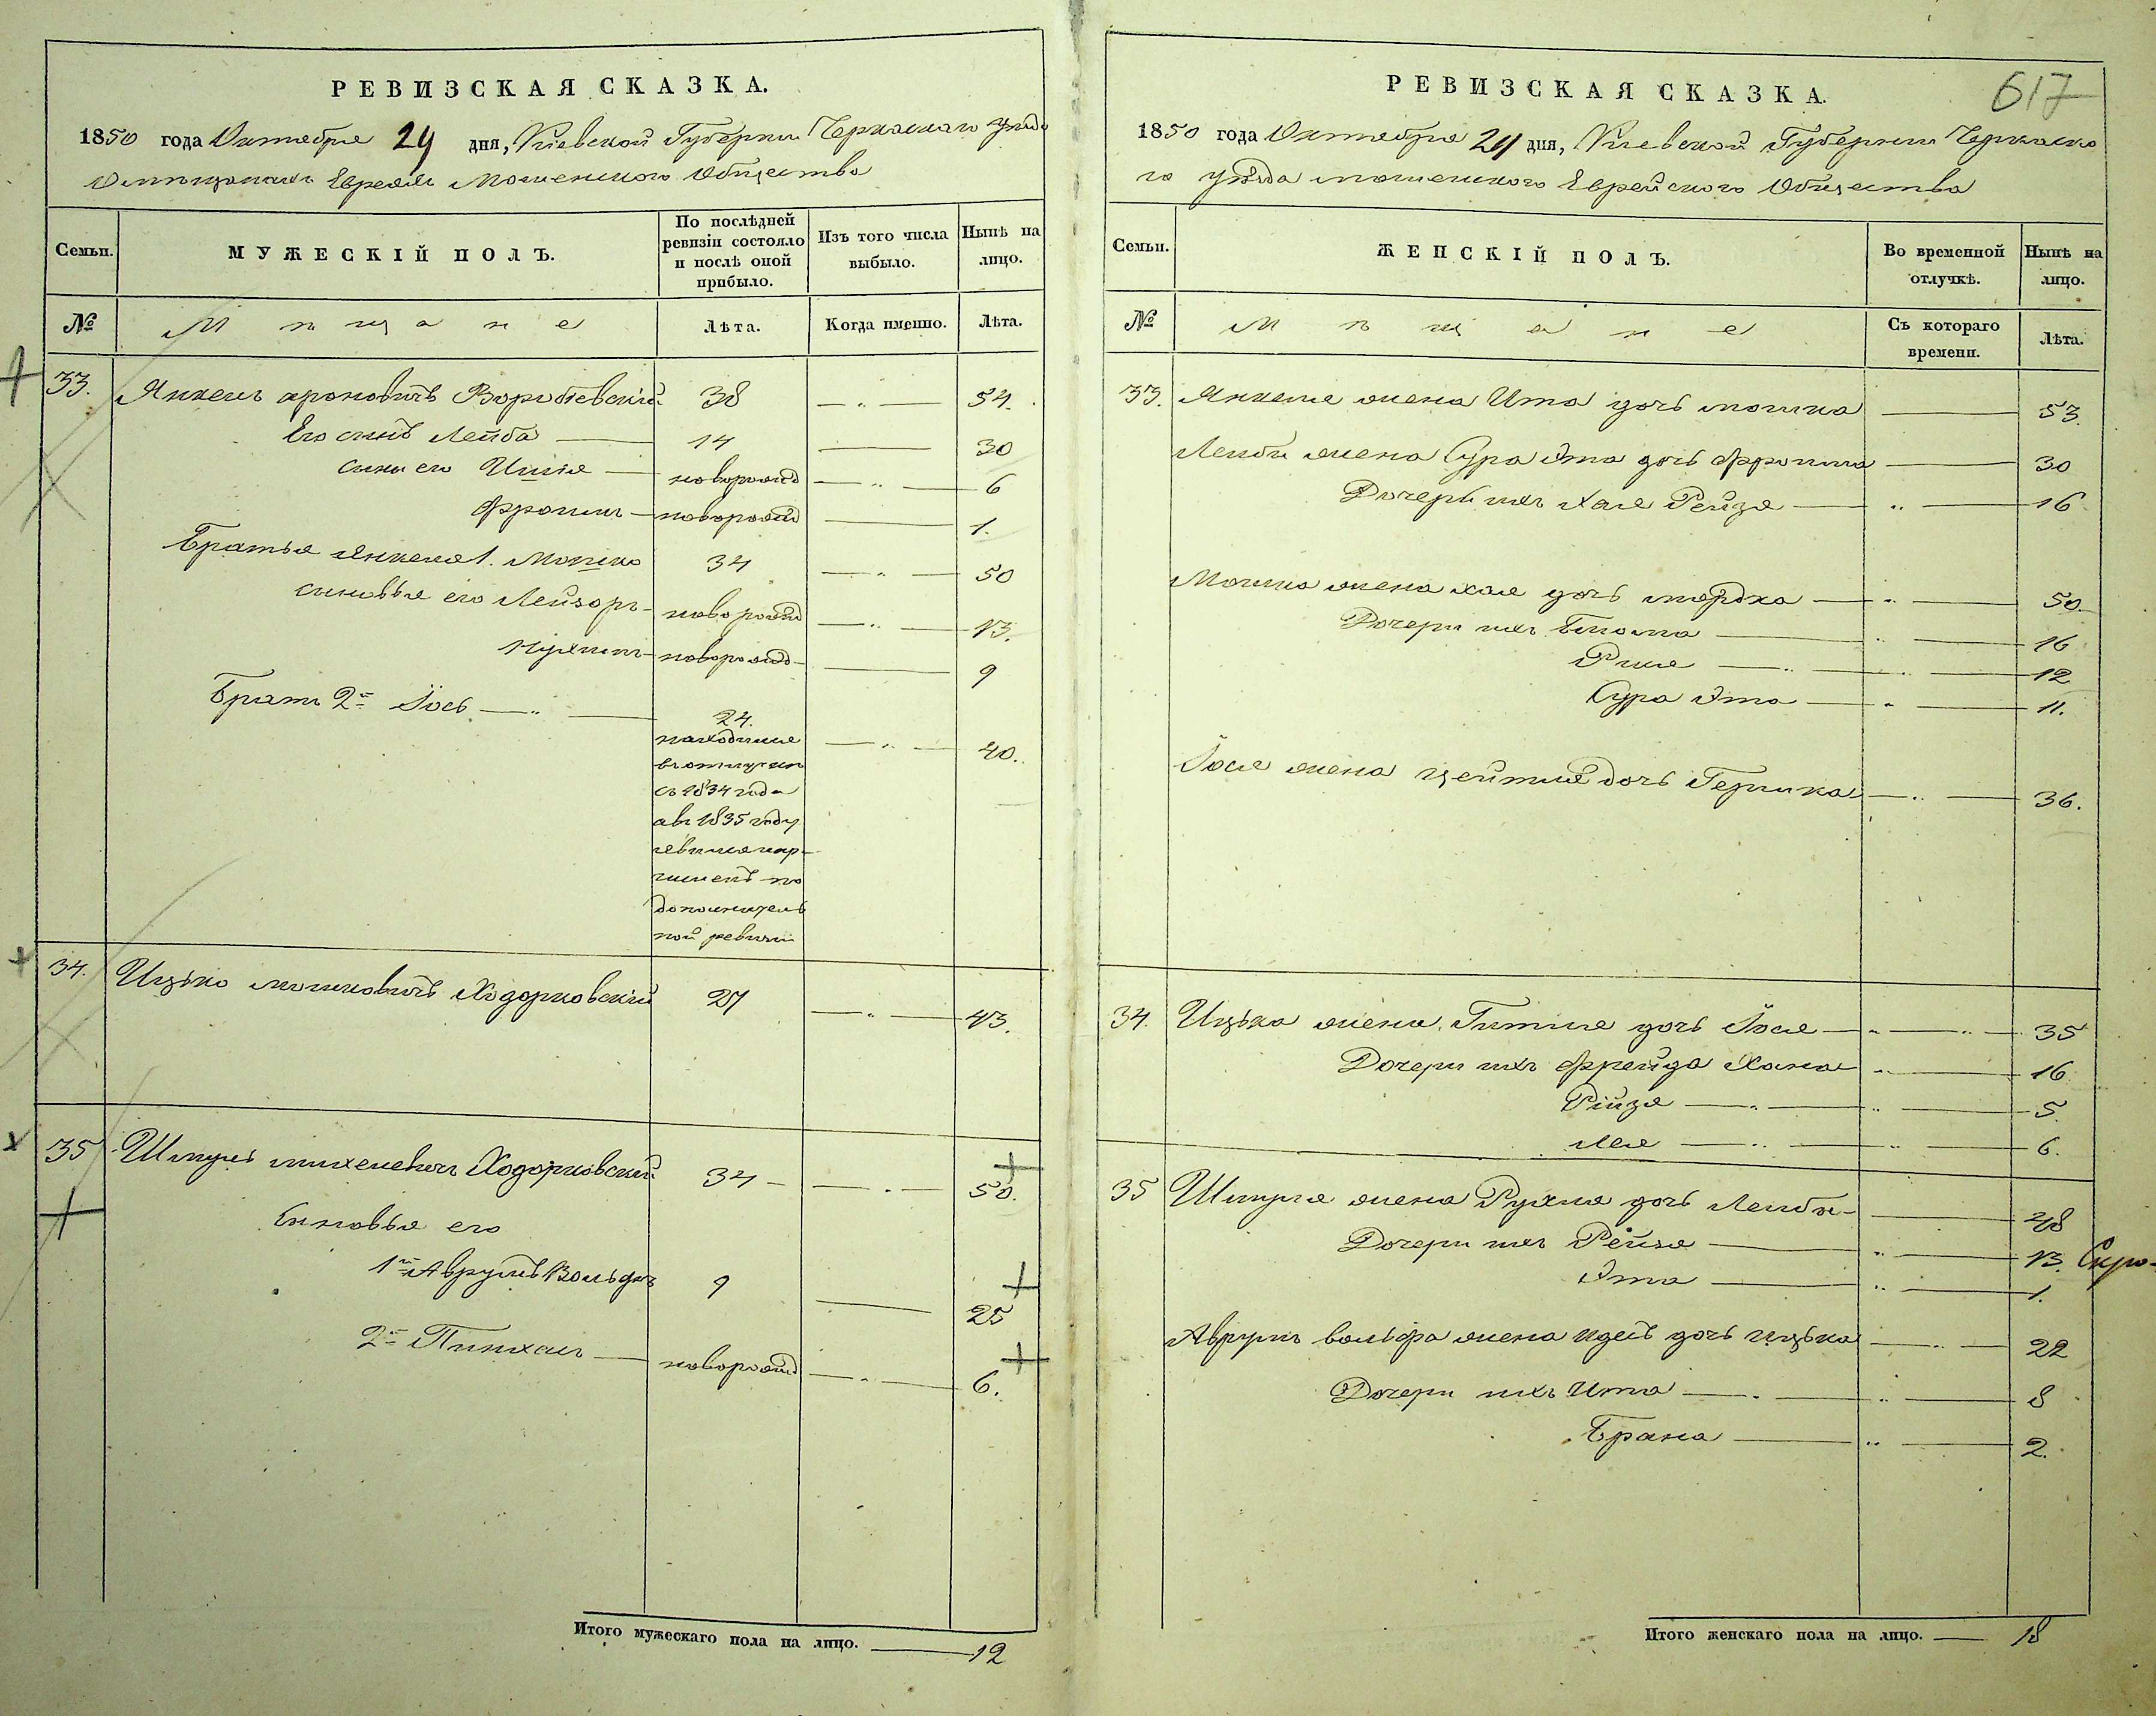 РЕВИЗСКАЯ СКАЗКА.
1850 года Октября 24 дня, Киевской Губернии Черкаскаго уезда
О мѣщанахъ Евреяхъ Мошенскаго Общества
Семьи.
МУЖЕСКІЙ ПОЛЪ.
По послѣдней ревизіи состояло и послѣ оной прибыло.
Изъ того числа выбыло.
Нынѣ на лицо.
№
Мѣщане
Лѣта.
Когда именно.
Лѣта.
33. Янкель Ароновичъ Воробіевскій 38 — 54.
Его сынъ Лейба — 14 — 30
сыны его Ицъя — новорожд — 6
Фроимъ — новорожд — 1.
Братья Янкеля 1. Мошко 34 — 50
сыновья его Лейзоръ — новорожд — 13.
Нухимъ — новорожд — 9
Братъ 2й Іось — 24. — 40.
находился
въ отлучки
съ 1834 года
а въ 1835 году
явился
по
дополнитель
ной ревизіи
34. Ицько Мошковичъ Ходорковскій 27 — 43.
35 Шмуль Михелевичъ Ходорковский 34 — 50.
Сыновья его
1й Аврумъ Вольфъ 9 — 25
2й Пинхасъ — новорожд — 6.
Итого мужескаго пола на лицо. — 12
617
РЕВИЗСКАЯ СКАЗКА.
1850 года Октября 24 дня, Киевской Губернии Черкаска
го уѣзда мошенскаго Еврейскаго Общества
Семьи.
ЖЕНСКІЙ ПОЛЪ.
Во временной отлучкѣ.
Нынѣ на лицо.
№
Мѣщане
Съ котораго времени.
Лѣта.
33. Янкеля жена Ита дочь мошка — 53.
Лейбы жена Сура Эта дочь Фроима — 30
Дочери ихъ Хая Рейзя — 16
Мошка жена хая дочь мордка — 50
Дочери ихъ — 16
— 12
Сура Эта — 11.
Іося жена Цейтля дочь Гершка — 36.
34. Ицька жена Гитля дочь Іося — 35
Дочери ихъ Фрейда Хана — 16
Рійзя — 5.
Лея — 6.
35 Шмуля жена Рухля дочь Лейбы — 48
Дочери ихъ Рейзя — 13.
Эта — 1.
Аврумъ вольфа жена Идесь дочь ицька — 22
Дочери ихъ Ита — 8
Брана — 2.
Итого женскаго пола на лицо. — 18